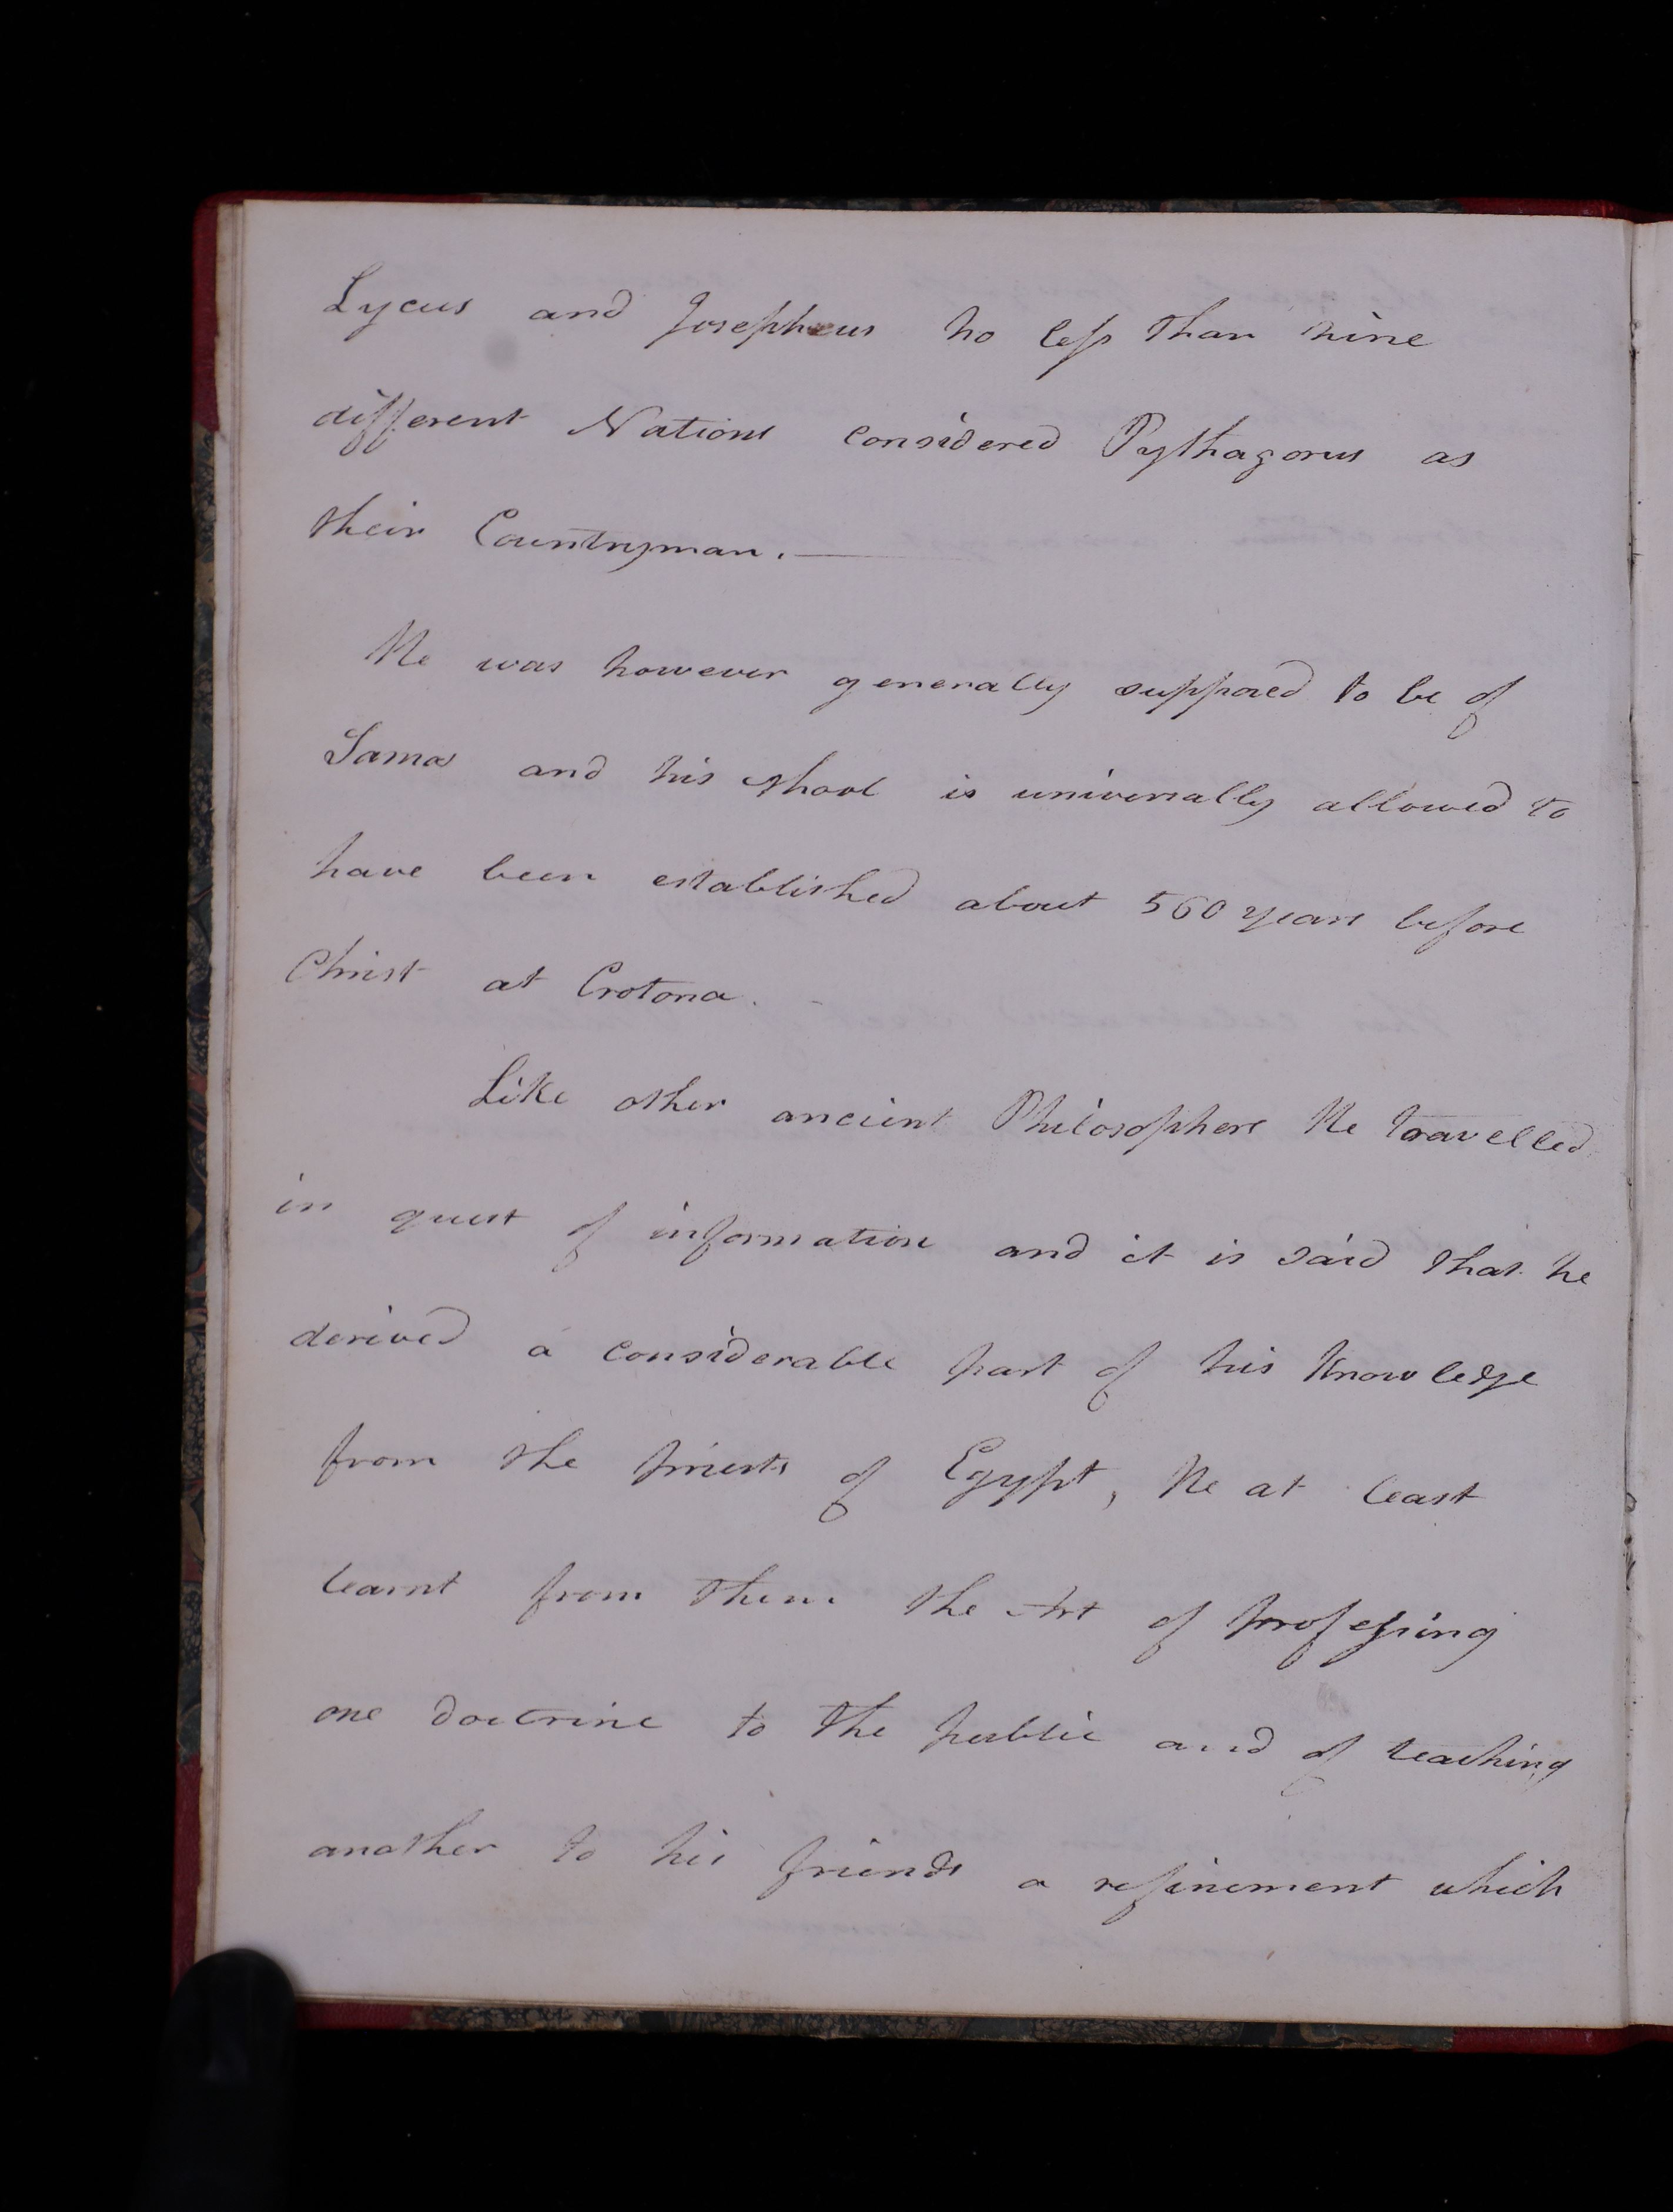 Lycus and Josepheus no less than nine
different Nations considered Pythagorus as
their Countryman. —
He was however generally supposed to be of
Samos and his school is universally allowed to
have been established about 560 years before
Christ at Crotona. -
Like other ancient Philosophers He travelled
in quest of information and it is said that he
derived a considerable part of his Knowledge
from the priests of Egypt, He at least
learnt from them the Art of professing
one doctrine to the public and of teaching
another to his friends a refinement which